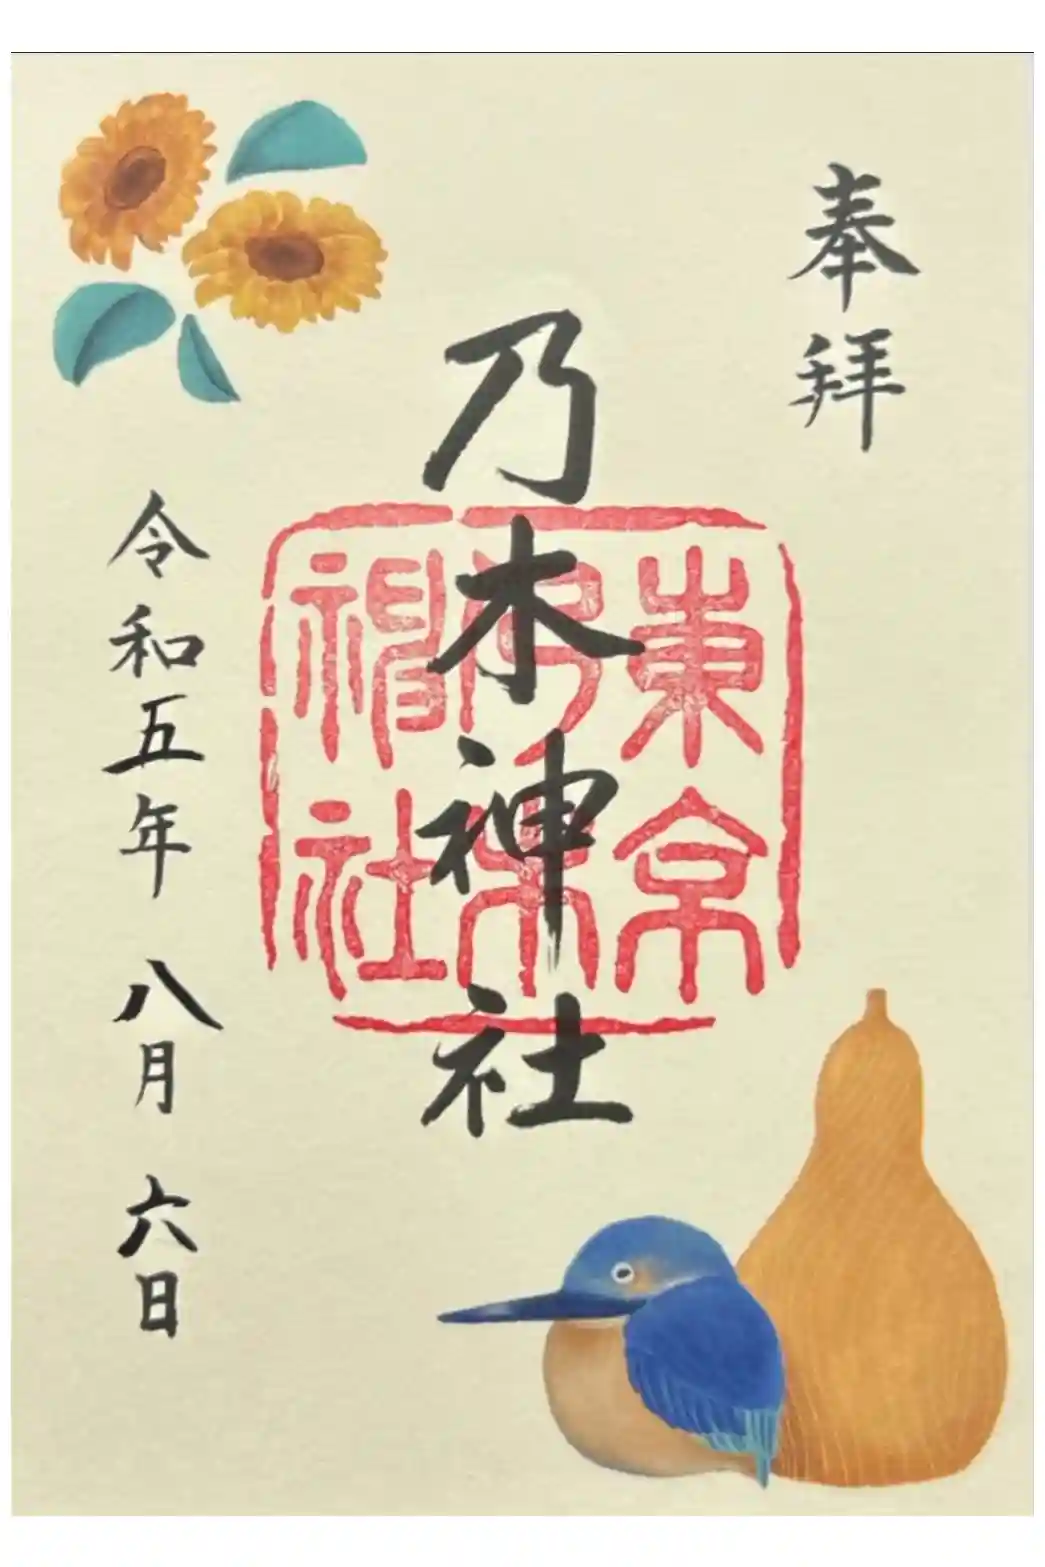 奉拝
乃木神社
東京
乃木
神社
令和五年 八月 六日